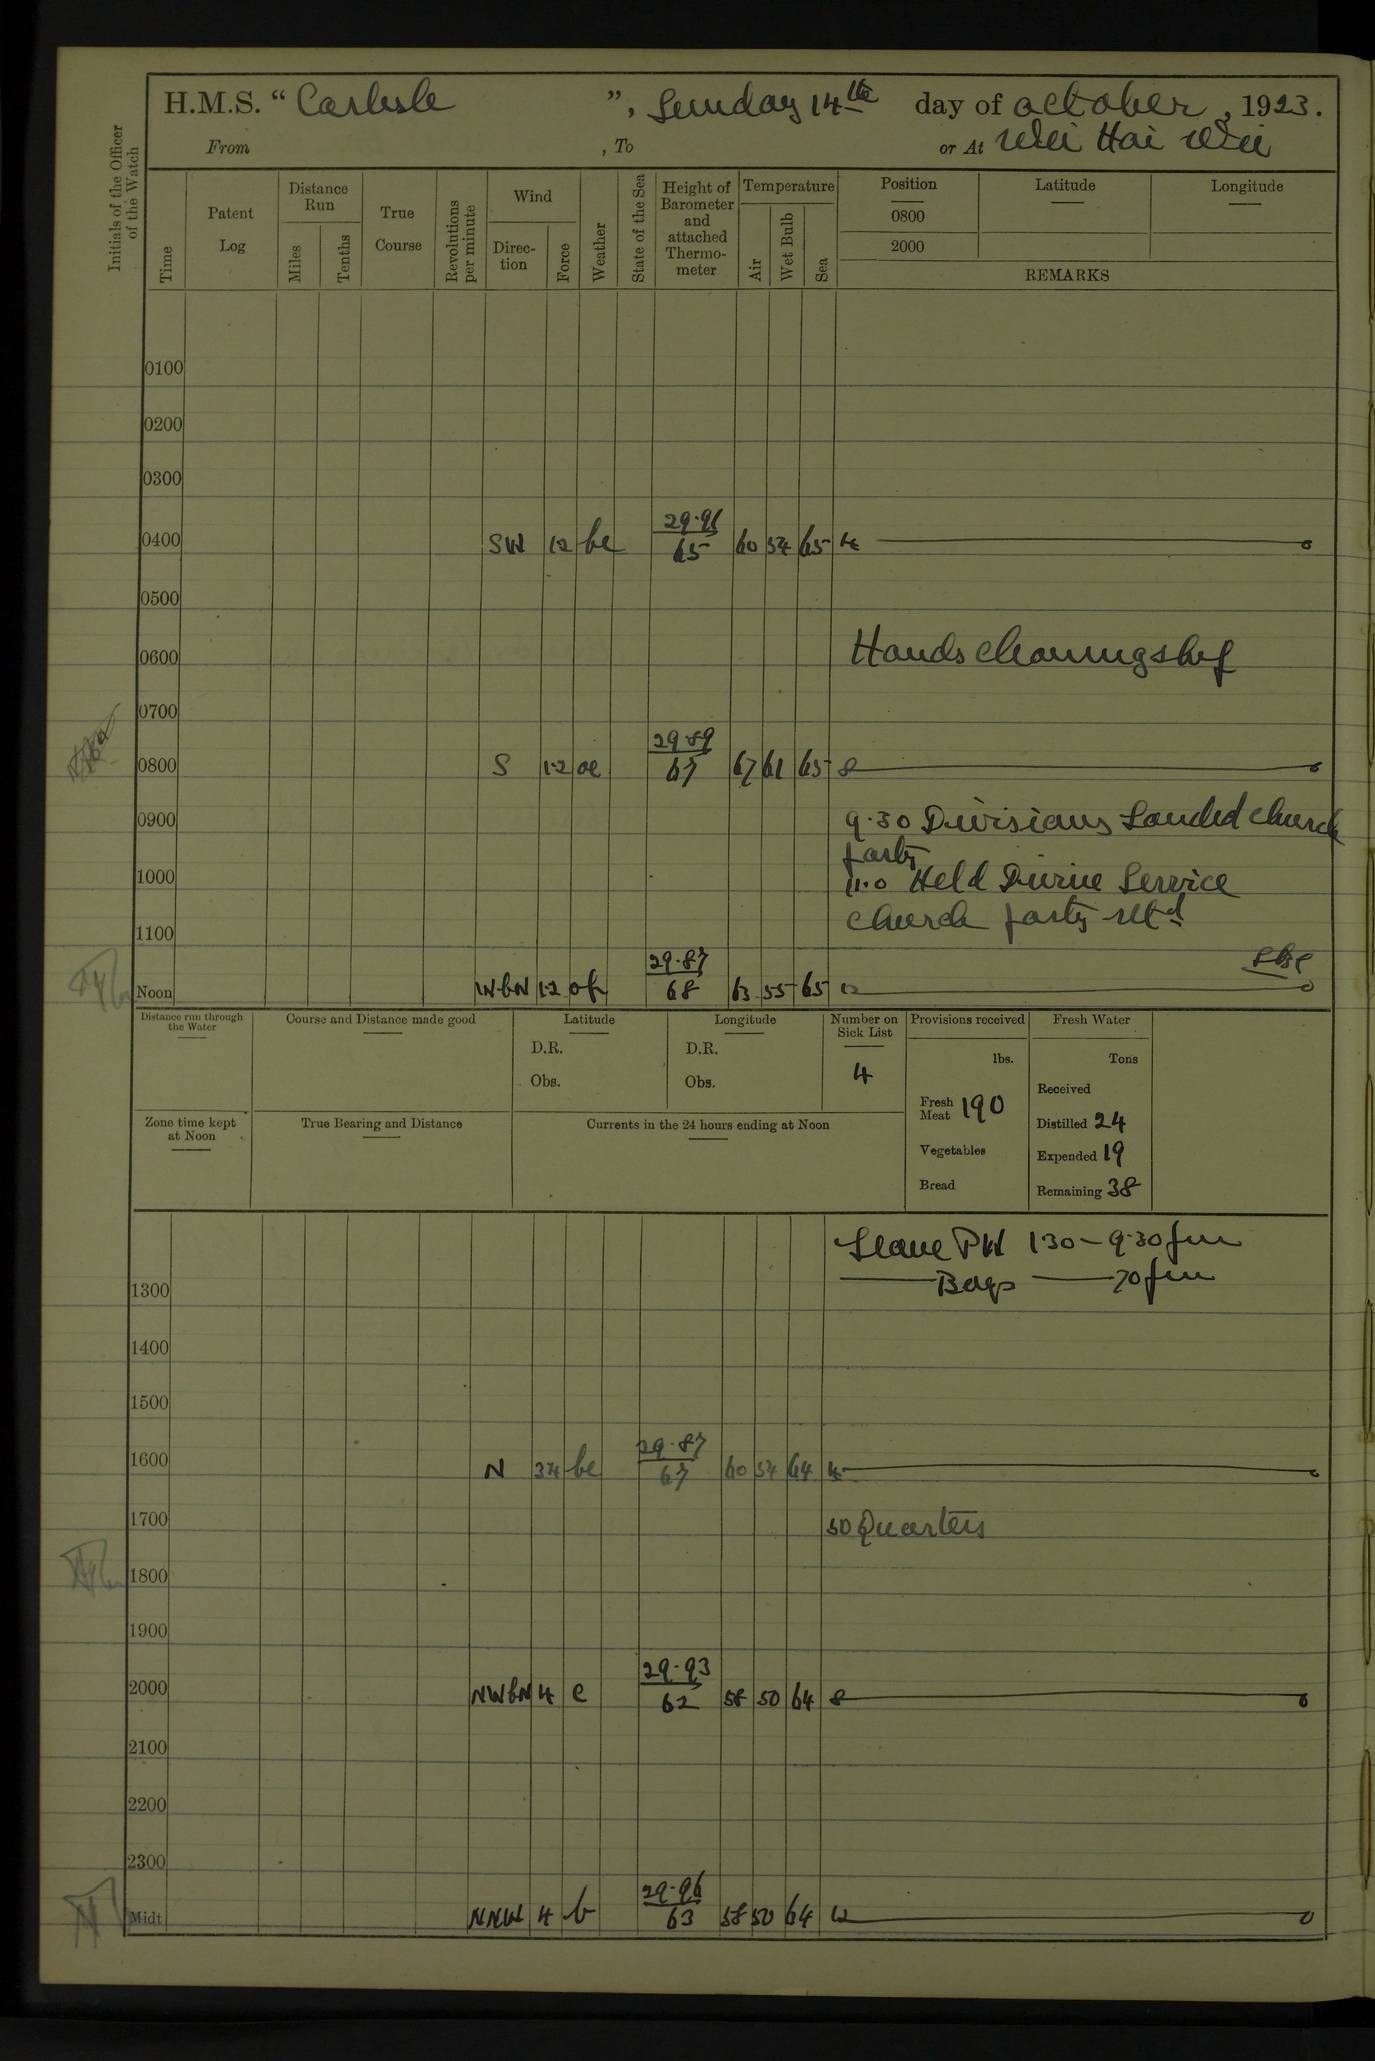 H.M.S. “ Carlisle ”, Sunday 14th day of October, 1923.
From , To or At Wei Hai Wei
Initials of the Officer of the Watch
Time
Patent Log
Distance Run
Miles
Tenths
True Course
Revolutions per minute
Wind
Direc-tion
Force
Weather
State of the Sea
Height of Barometer and attached Thermo-meter
Temperature
Air
Wet Bulb
Sea
Position
0800
2000
Latitude
Longitude
REMARKS
0100
0200
0300
29.91
0400 SW 12 bc 65 60 54 65 4
0500
0600 Hands cleaning ship
0700
29.89
0800 S 1.2 oc 67 67 61 65 8
0900 9.30 Divisions Landed Church
party
1000 11.0 Held Divine Service
Church party retd
1100
29.87
Noon WbN 1.2 68 63 55 65 12
Distance run through the Water
Course and Distance made good
Latitude
D.R.
Obs.
Longitude
D.R.
Obs.
Number on Sick List
4
Provisions received
lbs.
Fresh Meat 190
Vegetables
Bread
Fresh Water
Tons
Received
Distilled 24
Expended 19
Remaining 38
Zone time kept at Noon
True Bearing and Distance
Currents in the 24 hours ending at Noon
Leave PW 1.30 – 9.30 pm
Boys 70 pm
1300
1400
1500
29.87
1600 N 34 bc 67 60 54 64 4
1700 50 Quarters
1800
1900
29.93
2000 NWbN 4 c 62 58 50 64 8
2100
2200
2300
29.96
Midt. NNW 4 b 63 58 50 64 12